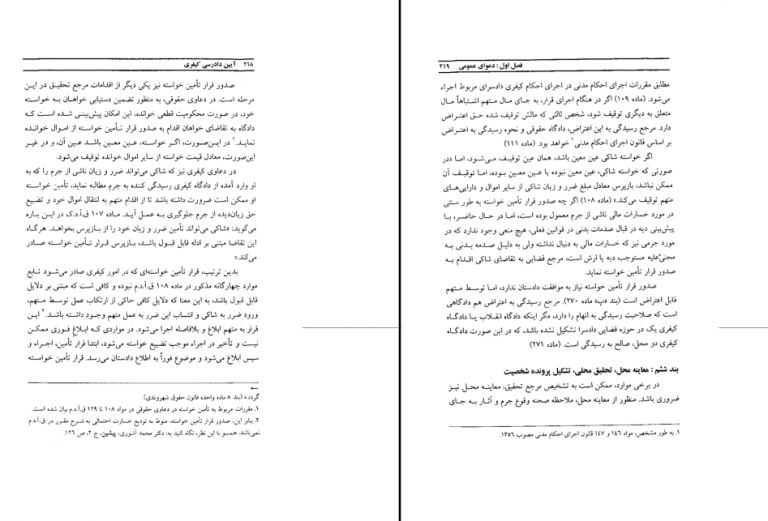 ۲۱۸ آیین دادرسی کیفری
صدور قرار تأمین خواسته نیز یکی دیگر از اقدامات مرجع تحقیق در این
مرحله است. در دعاوی حقوقی، به منظور تضمین دستیابی خواهان به خواسته
خود، در صورت محکومیت قطعی خوانده، این امکان پیش‌بینی شده است که
دادگاه به تقاضای خواهان اقدام به صدور قرار تأمین خواسته از اموال خوانده
نماید.۱ در این‌صورت، اگر خواسته، عین معین باشد عین آن، و در غیر
این‌صورت، معادل قیمت خواسته از سایر اموال خوانده توقیف می‌شود.
در دعاوی کیفری نیز که شاکی می‌تواند ضرر و زیان ناشی از جرم را که به
او وارد آمده از دادگاه کیفری رسیدگی کننده به جرم مطالبه نماید، تأمین خواسته
او ممکن است ضرورت داشته باشد تا از اقدام متهم به انتقال اموال خود و تضییع
حق زیان‌دیده از جرم جلوگیری به عمل آید. ماده ۱۰۷ ق.آ.د.ک در این باره
می‌گوید: «شاکی می‌تواند تأمین ضرر و زیان خود را از بازپرس بخواهد. هرگاه
این تقاضا مبتنی بر ادله قابل قبول باشد، بازپرس قرار تأمین خواسته صادر
می‌کند.»
بدین ترتیب، قرار تأمین خواسته‌ای که در امور کیفری صادر می‌شود تابع
موارد چهارگانه مذکور در ماده ۱۰۸ ق.آ.د.م نبوده و کافی است که مبتنی بر دلایل
قابل قبول باشد، به این معنا که دلایل کافی حاکی از ارتکاب عمل توسط متهم،
ورود ضرر به شاکی و انتساب این ضرر به عمل متهم وجود داشته باشد.۲ این
قرار به متهم ابلاغ و بلافاصله اجرا می‌شود. در مواردی که ابلاغ فوری ممکن
نیست و تأخیر در اجراء موجب تضییع خواسته می‌شود، ابتدا قرار تأمین، اجراء و
سپس ابلاغ می‌شود و موضوع فوراً به اطلاع دادستان می‌رسد. قرار تأمین خواسته
←
گردد.» (بند ۸ ماده واحده قانون حقوق شهروندی)
۱. مقررات مربوط به تأمین خواسته در دعاوی حقوقی در مواد ۱۰۸ تا ۱۲۹ ق.آ.د.م بیان شده است.
۲. بنابر این، صدور قرار تأمین خواسته، منوط به تودیع خسارت احتمالی به شرح مقرر در ق.آ.د.م
نمی‌باشد. همسو با این نظر، نگاه کنید به: دکتر محمد آشوری، پیشین، ج ۲، ص ۱۲۶.
فصل اول: دعوای عمومی ۲۱۹
مطابق مقررات اجرای احکام مدنی در اجرای احکام کیفری دادسرای مربوط اجراء
می‌شود. (ماده ۱۰۹) اگر در هنگام اجرای قرار، به جای مال متهم اشتباهاً مال
متعلق به دیگری توقیف شود، شخص ثالثی که مالش توقیف شده حق اعتراض
دارد. مرجع رسیدگی به این اعتراض، دادگاه حقوقی و نحوه رسیدگی به اعتراض
بر اساس قانون اجرای احکام مدنی۱ خواهد بود. (ماده ۱۱۱)
اگر خواسته شاکی عین معین باشد، همان عین توقیف می‌شود، اما «در
صورتی که خواسته شاکی، عین معین نبوده یا عین معین بوده، اما توقیف آن
ممکن نباشد، بازپرس معادل مبلغ ضرر و زیان شاکی از سایر اموال و دارایی‌های
متهم توقیف می‌کند.» (ماده ۱۰۸) اگر چه صدور قرار تأمین خواسته به طور سنتی
در مورد خسارات مالی ناشی از جرم معمول بوده است، اما در حال حاضر، با
پیش‌بینی دیه در قبال صدمات بدنی در قوانین فعلی، هیچ منعی وجود ندارد که در
مورد جرمی نیز که خسارات مالی به دنبال نداشته ولی به دلیل صدمه بدنی به
مجنی‌علیه مستوجب دیه یا ارش است، مرجع قضایی به تقاضای شاکی اقدام به
صدور قرار تأمین خواسته نماید.
صدور قرار تأمین خواسته نیاز به موافقت دادستان ندارد، اما توسط متهم
قابل اعتراض است (بند «ب» ماده ۲۷۰). مرجع رسیدگی به اعتراض هم دادگاهی
است که صلاحیت رسیدگی به اتهام را دارد، مگر اینکه دادگاه انقلاب یا دادگاه
کیفری یک در حوزه قضایی دادسرا تشکیل نشده باشد، که در این صورت دادگاه
کیفری دو محل، صالح به رسیدگی است. (ماده ۲۷۱)
بند ششم: معاینه محل، تحقیق محلی، تشکیل پرونده شخصیت
در برخی موارد، ممکن است به تشخیص مرجع تحقیق، معاینه محل نیز
ضروری باشد. منظور از معاینه محل، ملاحظه صحنه وقوع جرم و آثار به جای
۱. به طور مشخص، مواد ۱۴۶ و ۱۴۷ قانون اجرای احکام مدنی مصوب ۱۳۵۶.